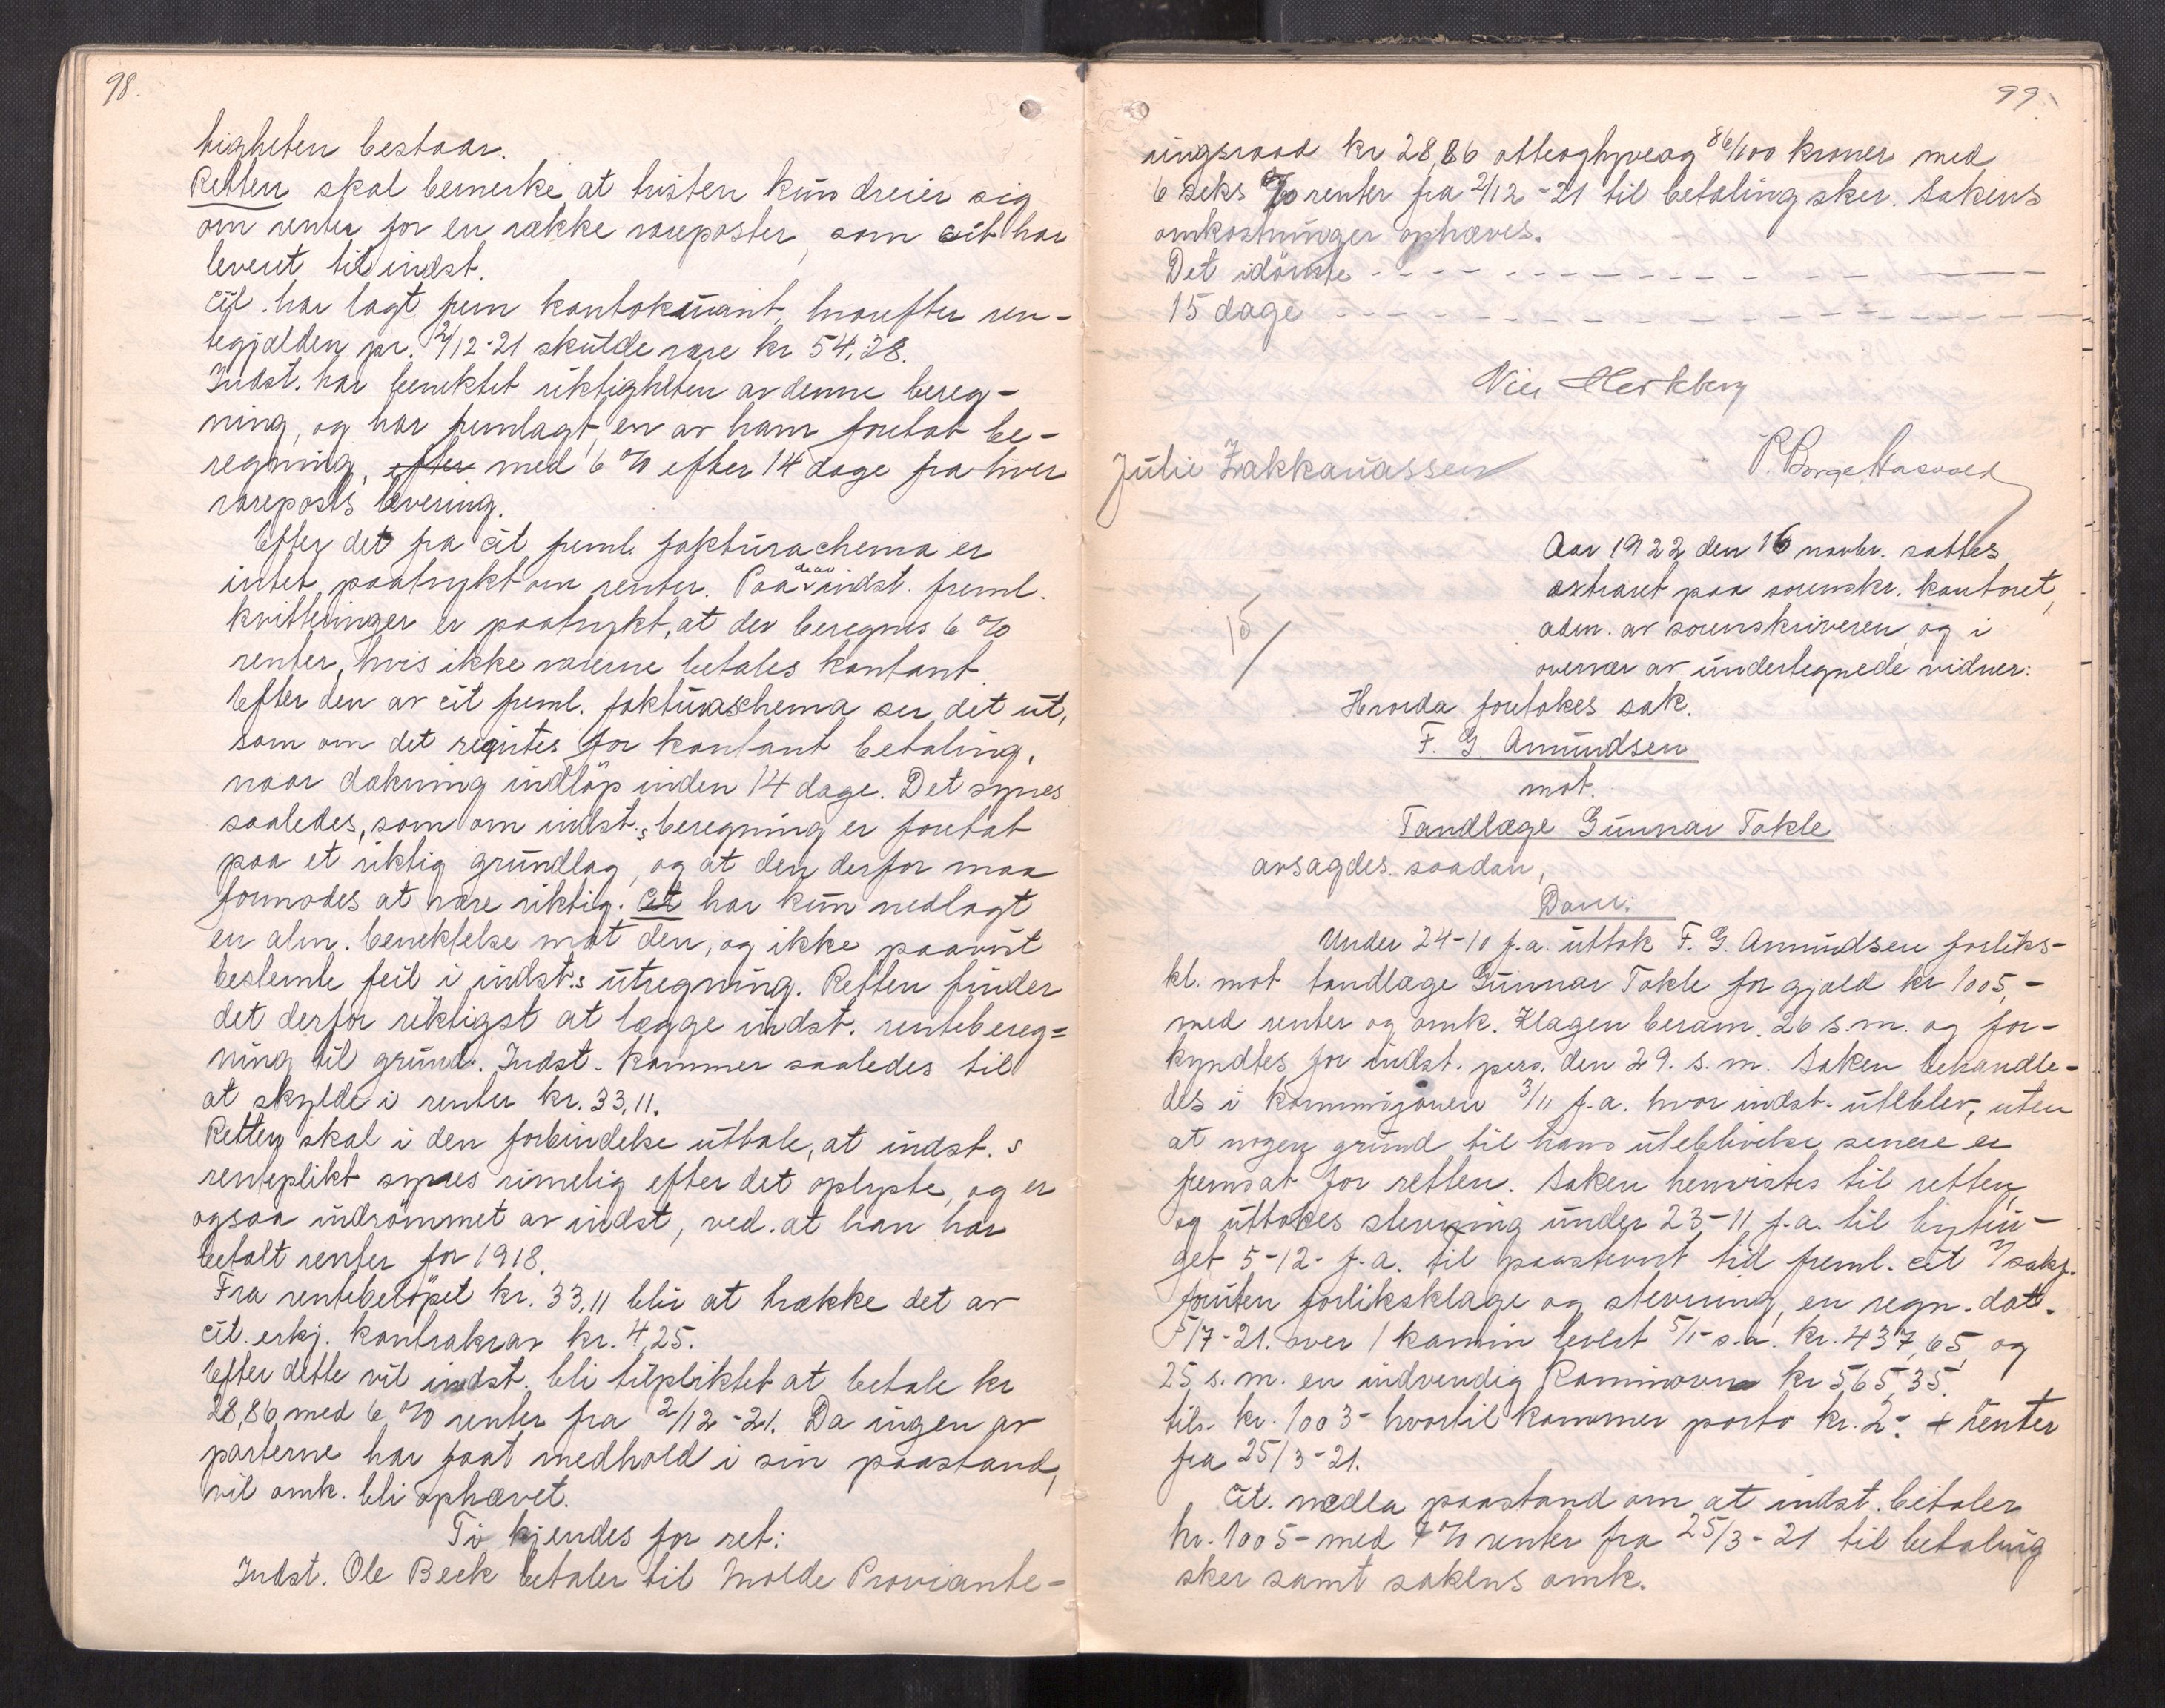 98.
tigheten bestaar.
Retten skal bemerke at tvisten kun dreier sig
om renter for en række vareposter, som cit har
leveret til indst.
Cit. har lagt frem kontokurant, hvorefter ren-
tegjælden pr. 2/12-21 skulde være kr 54,28.
Indst. har benektet riktigheten av denne bereg-
ning, og har fremlagt en av ham foretat be-
regning, efter med 6 % efter 14 dage fra hver
vareposts levering.
Efter det fra cit freml. fakturachema er
intet paatrykt om renter. Paa de av indst. freml.
kvitteringer er paatrykt, at der beregnes 6 %
renter, hvis ikke varerne betales kontant.
Efter den av cit freml. fakturaschema ser det ut,
som om det regntes for kontant betaling,
naar dækning indløp inden 14 dage. Det synes
saaledes, som om indst.s beregning er foretat
paa et riktig grundlag, og at den derfor maa
formodes at være riktig. Cit har kun nedlagt
en alm. benektelse mot den, og ikke paavist
bestemte feil i indst.s utregning. Retten finder
det derfor riktigst at lægge indst. rentebereg=
ning til grund. Indst. kommer saaledes til
at skylde i renter kr. 33,11.
Retten skal i den forbindelse uttale, at indst.s
renteplikt synes rimelig efter det oplyste, og er
ogsaa indrømmet av indst, ved at han har
betalt renter for 1918.
Fra rentebeløpet kr. 33,11 blir at trække det av
cit. erkj. kontrakrav kr. 4,25.
Efter dette vil indst. bli tilpliktet at betale kr
28,86 med 6 % renter fra 2/12-21. Da ingen av
parterne har faat medhold i sin paastand,
vil omk. bli ophævet.
Ti kjendes for ret:
Indst. Ole Beck betaler til Molde Proviante-
99.
ringsraad kr 28,86 otteogtyveog 86/100 kroner med
6 seks % renter fra 2/12-21 til betaling sker. Sakens
omkostninger ophæves.
Det idømte - - - - - - - -
15 dage - - - - - - - -
Julie Zakkariassen
Aar 1922 den 16 novbr. sattes
extraret paa sorenskr. kontoret,
adm. av sorenskriveren og i
overvær av undertegnede vidner:
15/
Hvorda foretokes sak.
F. G. Amundsen
mot.
Tandlæge Gunnar Takle
avsagdes saadan,
Dom:
Under 24-10 f.a. uttok F. G. Amundsen forliks-
kl. mot tandlæge Gunnar Takle for gjæld kr 1005,-
med renter og omk. Klagen beram. 26 s.m. og for-
kyndtes for indst. pers. den 29. s.m. Saken behandle-
des i kommisjonen 3/11 f.a. hvor indst. uteblev, uten
at nogen grund til hans uteblivelse senere er
fremsat for retten. Saken henvistes til retten,
og uttokes stevning under 23-11 f.a. til bytin-
get 5-12- f.a. til paastevnt tid freml. cit v/sakf.
foruten forliksklage og stevning, en regn. dat.
5/7-21. over 1 kamin levert 5/1- s.a. kr. 437,65 og
25 s.m. en indvendig Kaminovn kr 565,35.
tils. kr. 1003- hvortil kommer porto kr. 2- + renter
fra 25/3-21.
Cit. nedla paastand om at indst. betaler
kr. 1005- med 7 % renter fra 25/3-21 til betaling
sker samt sakens omk.